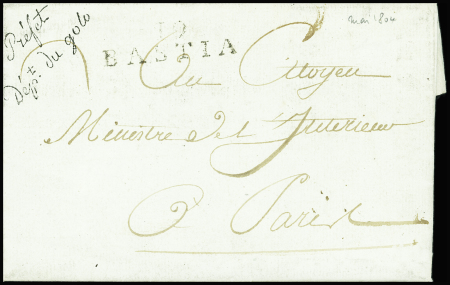 Préfet
Dépt. du golo
19
BASTIA
mai 1804
Au Citoyen
Ministre de l'Interieur
A Paris